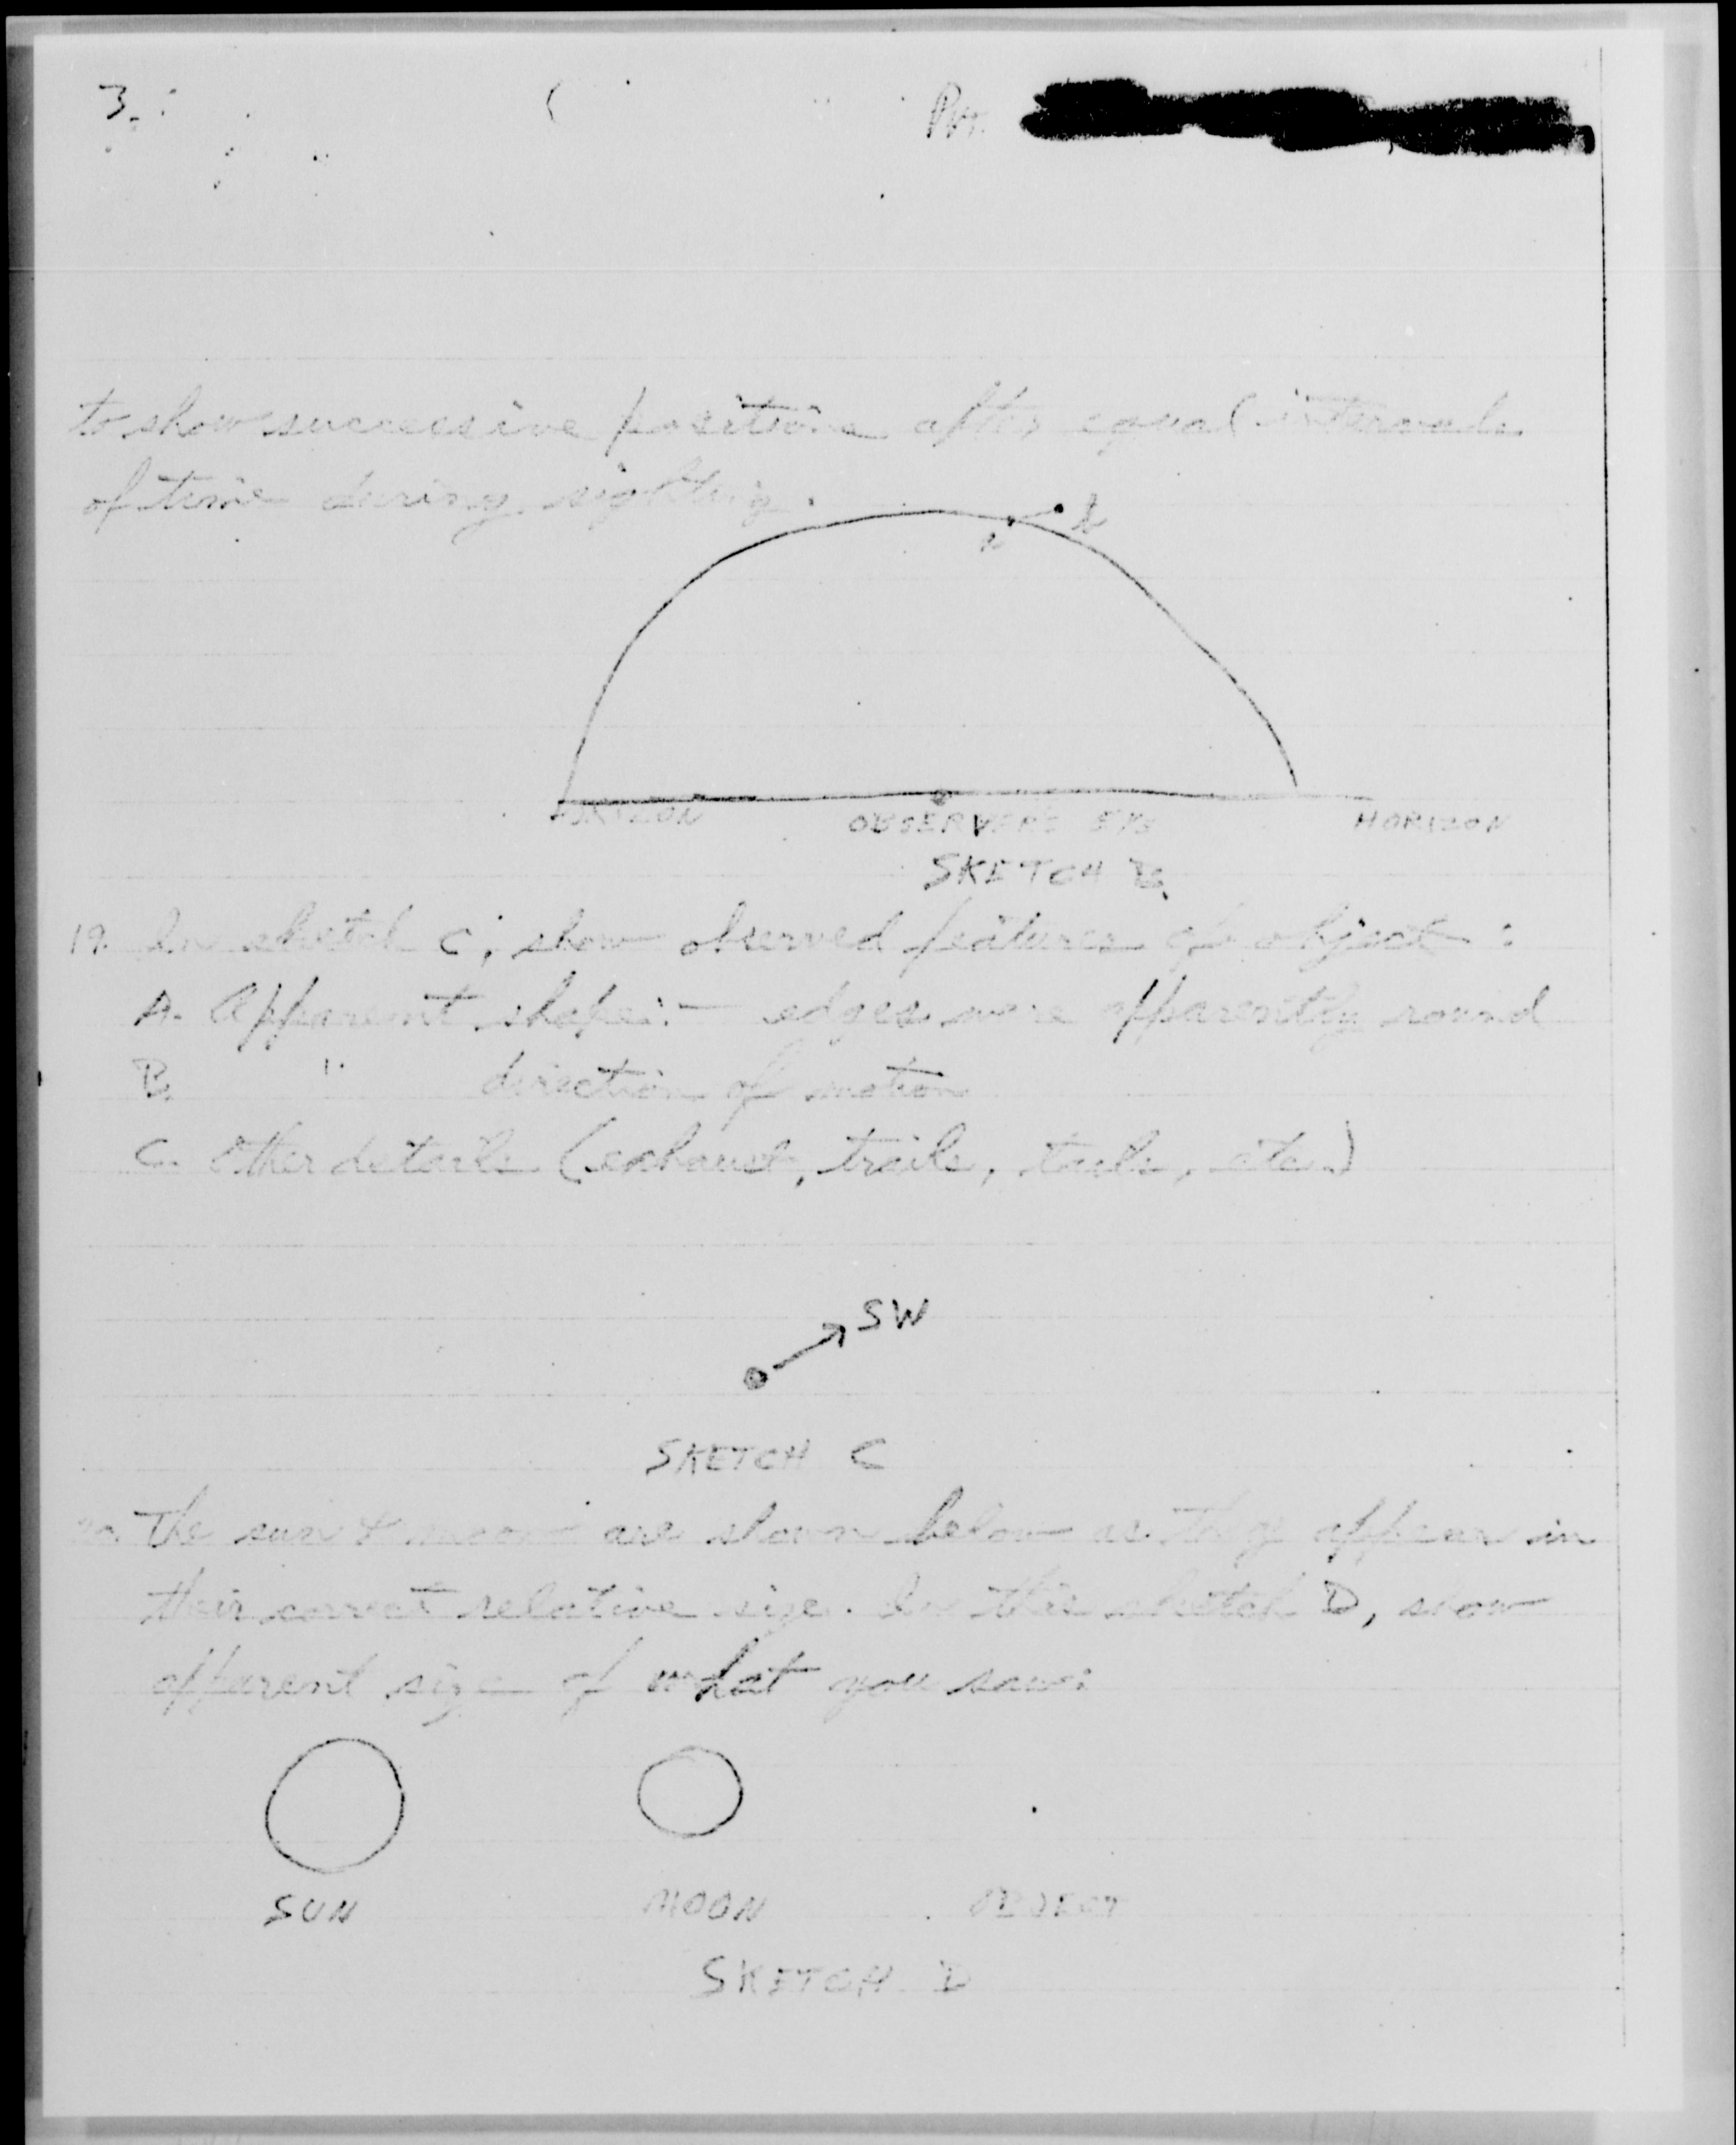 3.
Pvt.
to show successive positions after equal intervals
of time during sighting.
B
A
HORIZON OBSERVER'S EYE HORIZON
SKETCH B.
19. In sketch C, show observed features of object:
A. Apparent shape:- edges were apparently round
B. " direction of motion
C. Other details (exhaust, trails, tails, etc.)
SW
SKETCH C
20. The sun & moon are shown below as they appear in
their correct relative size. In this sketch D, show
apparent size of what you saw:
SUN MOON OBJECT
SKETCH D